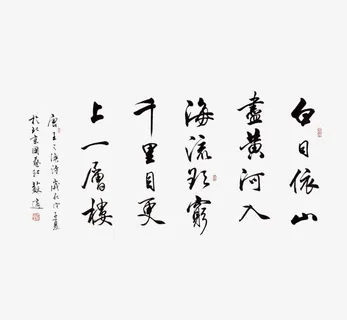 白日依山
盡黄河入
海流欲窮
千里目更
上一層樓
唐王之渙詩歲在戊子夏
於北京國藝